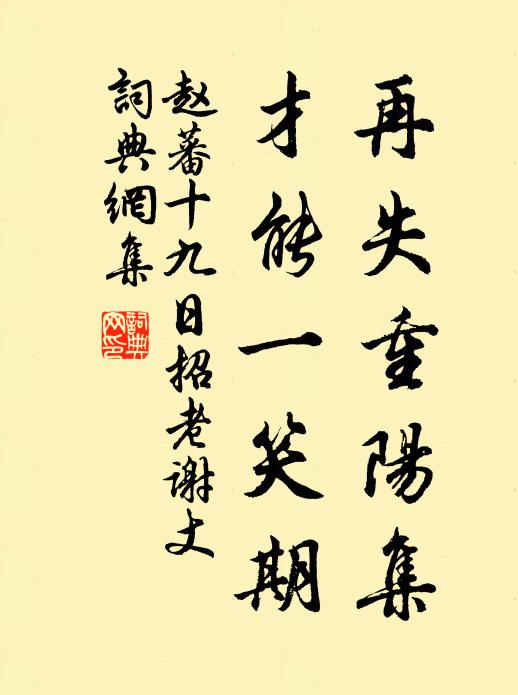 再失重陽集
才能一笑期
赵蕃十九日招老谢丈
詞典網集
詞典网印